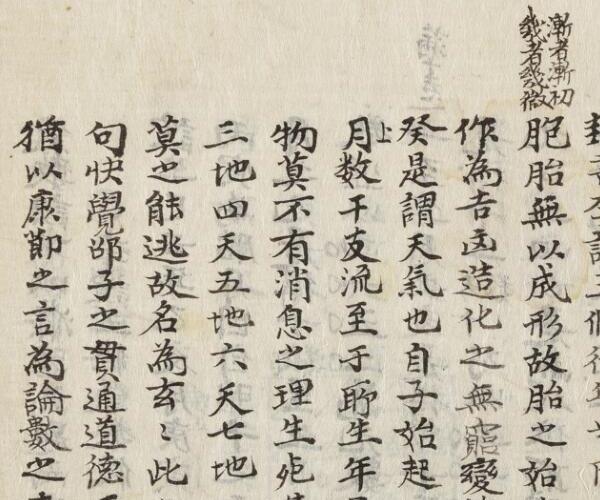 漸者漸初
幾者幾微
胞胎無以成形故胎之始
作為吉凶造化之無窮變
癸是謂天氣也自子始起
上
月数干支流至于所生年
物莫不有消息之理生死
三地四天五地六天七地
莫之能逃故名為玄〻此
句快覺邵子之貫通道德
猶以康節之言為論數之